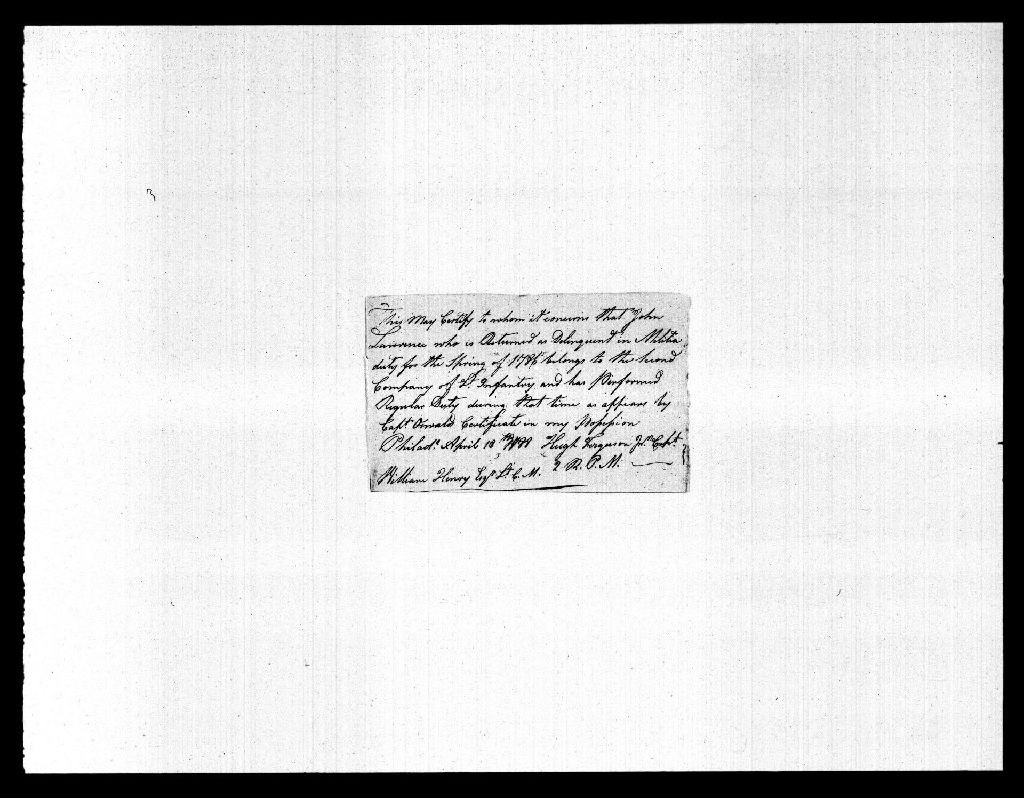 This May Certify to whom it concerns that John
Lawrance who is Returned as Delenquend in Militia
duty for the Spring of 1786 belongs to the second
Company of Lt Infantry and has Performed
Regular Duty during that time as appears by
Capt Oswald Certificate in my Possesion
Philada. April 18th Hugh Ferguson Jnr. Capt
William Henry Esqr Lt. C. M. 2 R. P. M.